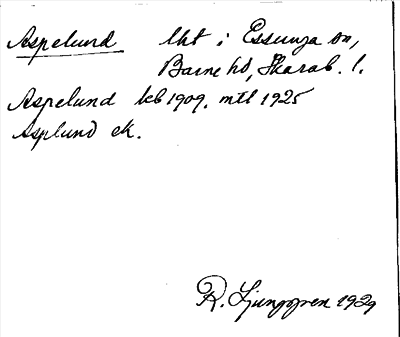 Aspelund lht i Essunga sn,
Barne hd, Skarab. l.
Aspelund kb 1909, mtl 1925
Asplund ek.
R. Ljunggren 1929